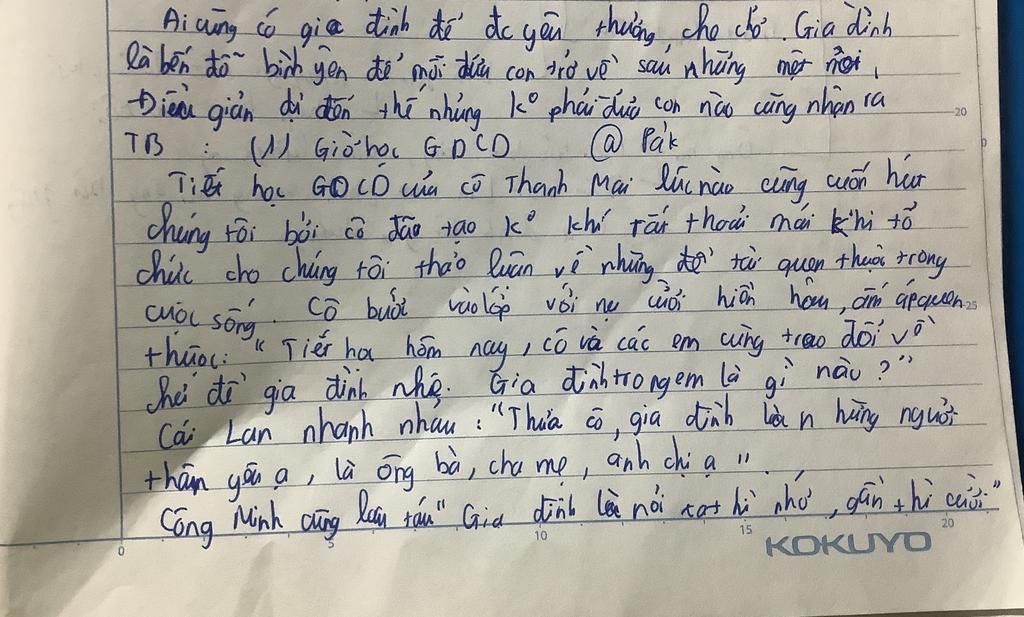 Ai cũng có gia đình để đc yêu thương, che chở. Gia đình
là bến đỗ bình yên để mỗi đứa con trở về sau những mệt mỏi,
Điều giản dị đến thế nhưng k° phải đứa con nào cũng nhận ra
20
TB : (1) Giờ học GDCD @ Pák
Tiết học GDCD của cô Thanh Mai lúc nào cũng cuốn hút
chúng tôi bởi cô đão tạo k° khí rất thoải mái khi tổ
chức cho chúng tôi thảo luận về những đề tài quen thuộc trong
cuộc sống. Cô bước vào lớp với nụ cười hiền hậu, ấm áp quen
25
thuộc: "Tiết học hôm nay, cô và các em cùng trao đổi về
chủ đề gia đình nhé. Gia đình trong em là gì nào?"
Cái Lan nhanh nhảu: "Thưa cô, gia đình là những người
thân yêu ạ, là ông bà, cha mẹ, anh chị ạ".
Công Minh cũng láu táu "Gia đình là nơi xa thì nhớ, gần thì cười"
0 5 10 15 20
KOKUYO